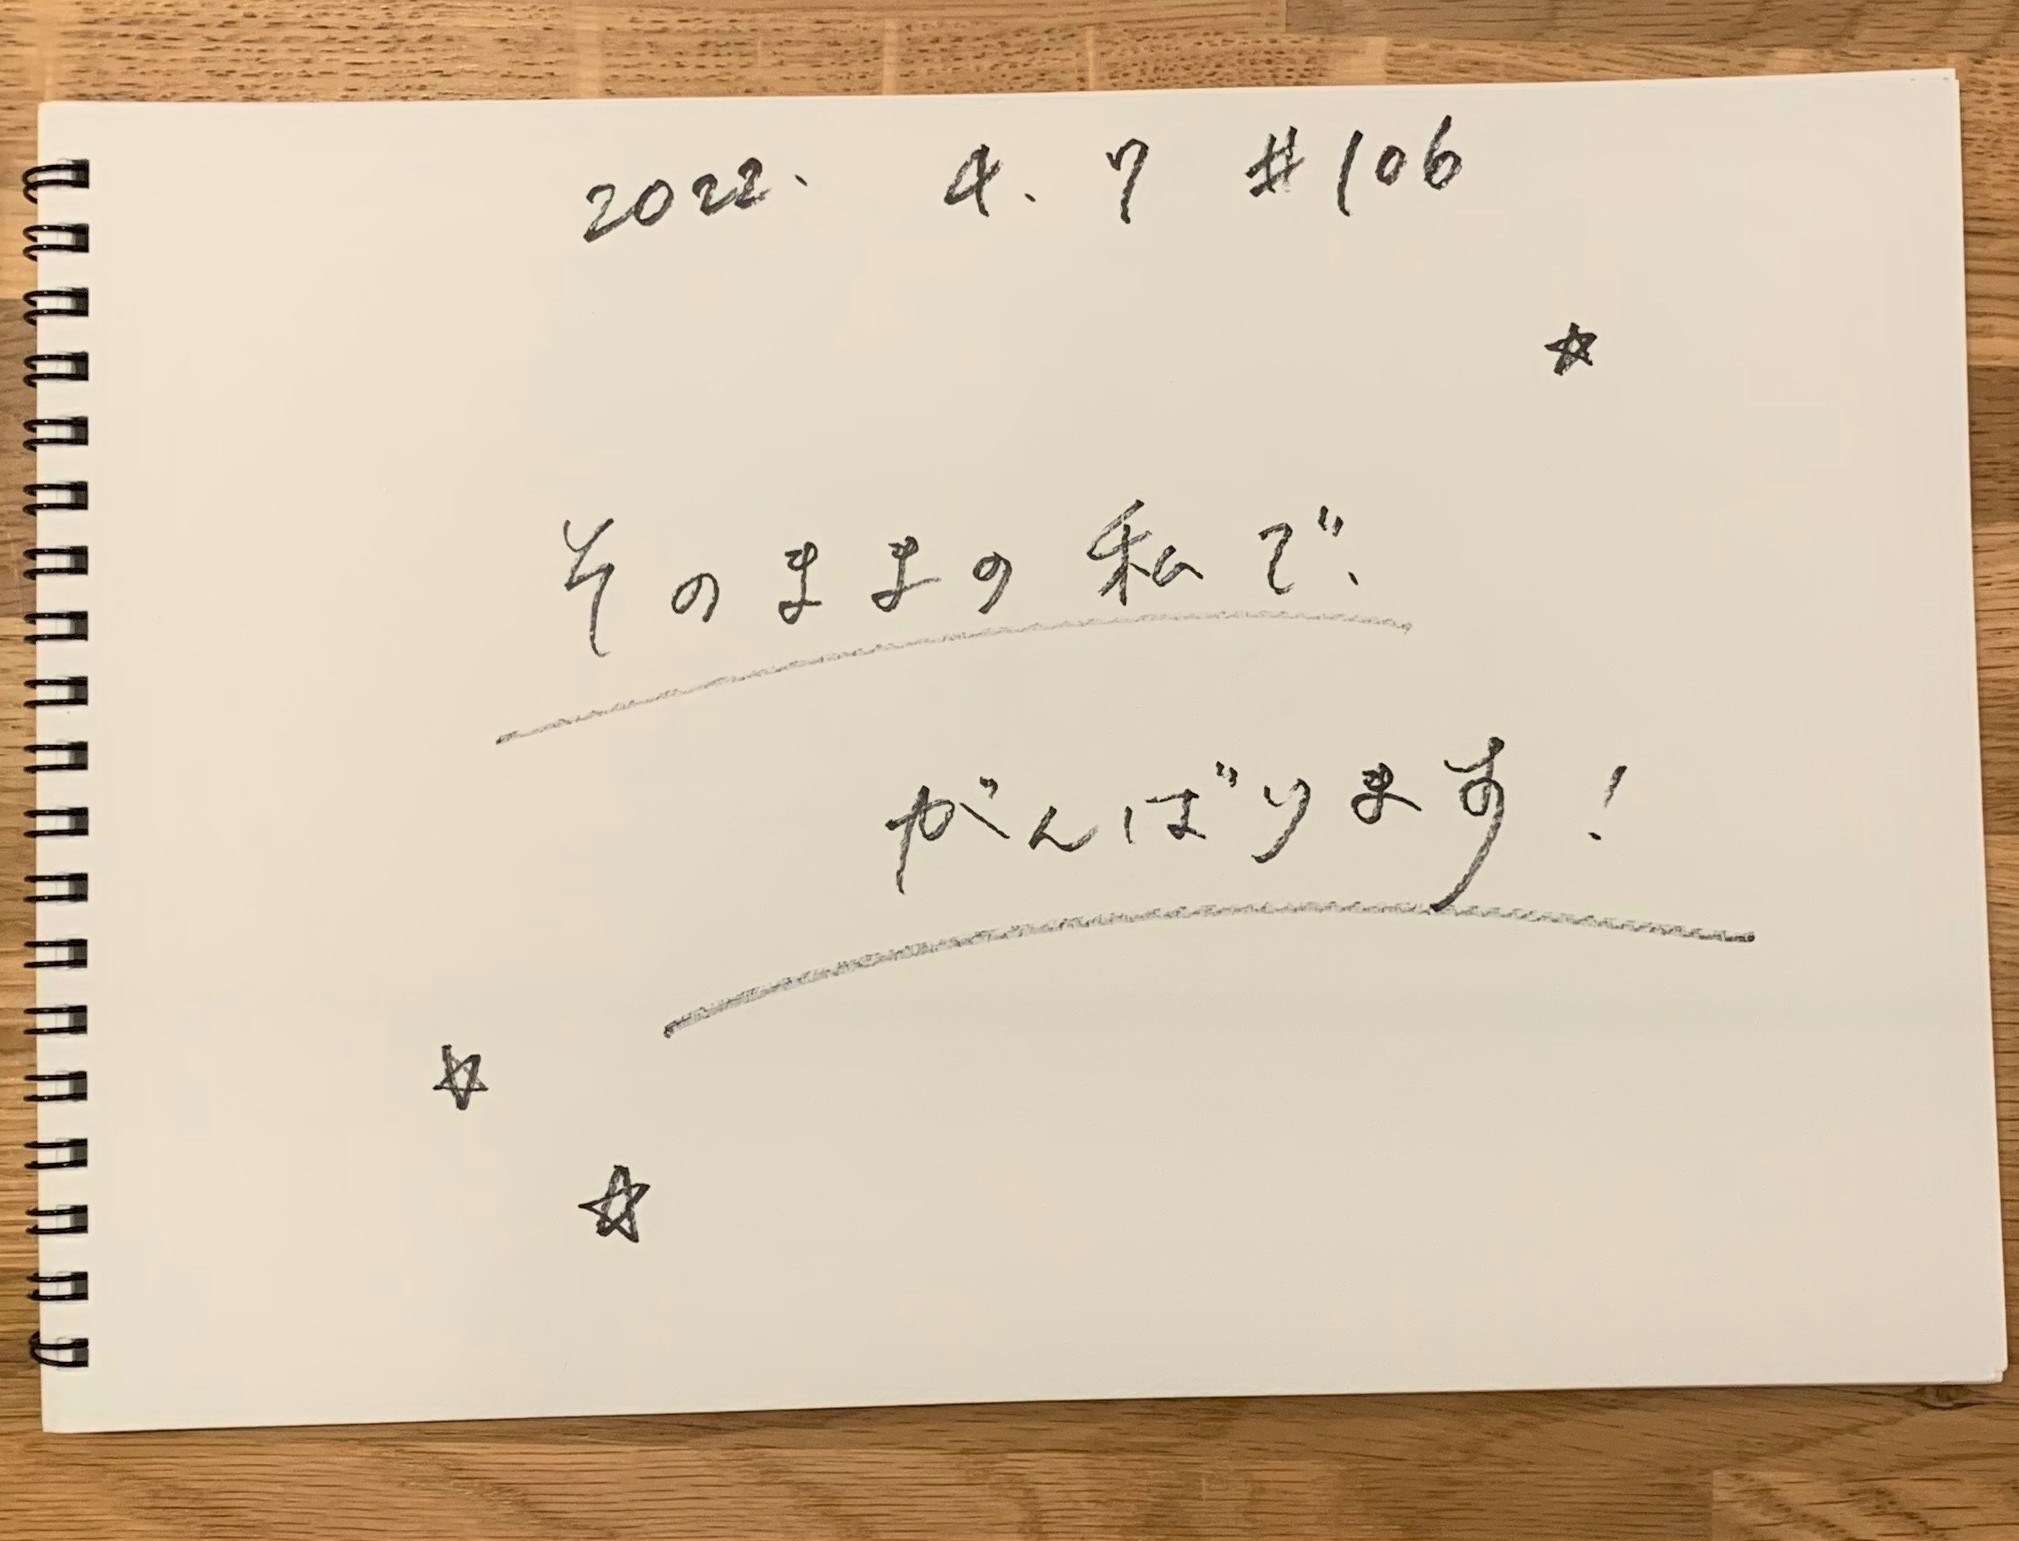 2022. 4. 7 #106
そのままの私で、
がんばります!